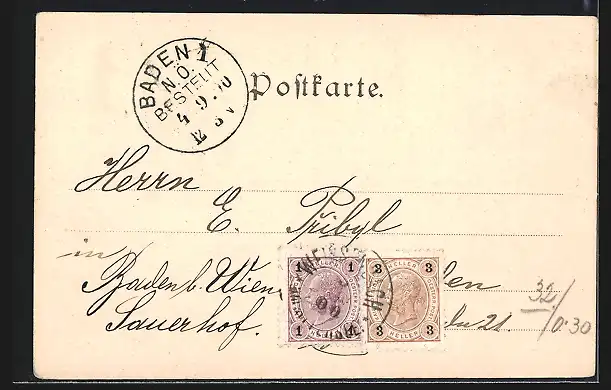 BADEN 1
N.Ö.
BESTELLT
4 9 00
Postkarte.
Herrn
E. Přibyl
in
Baden b. Wien
Sauerhof.
1 HELLER 1
3 HELLER 3
1 1
3 HELLER 3
32/
0.30